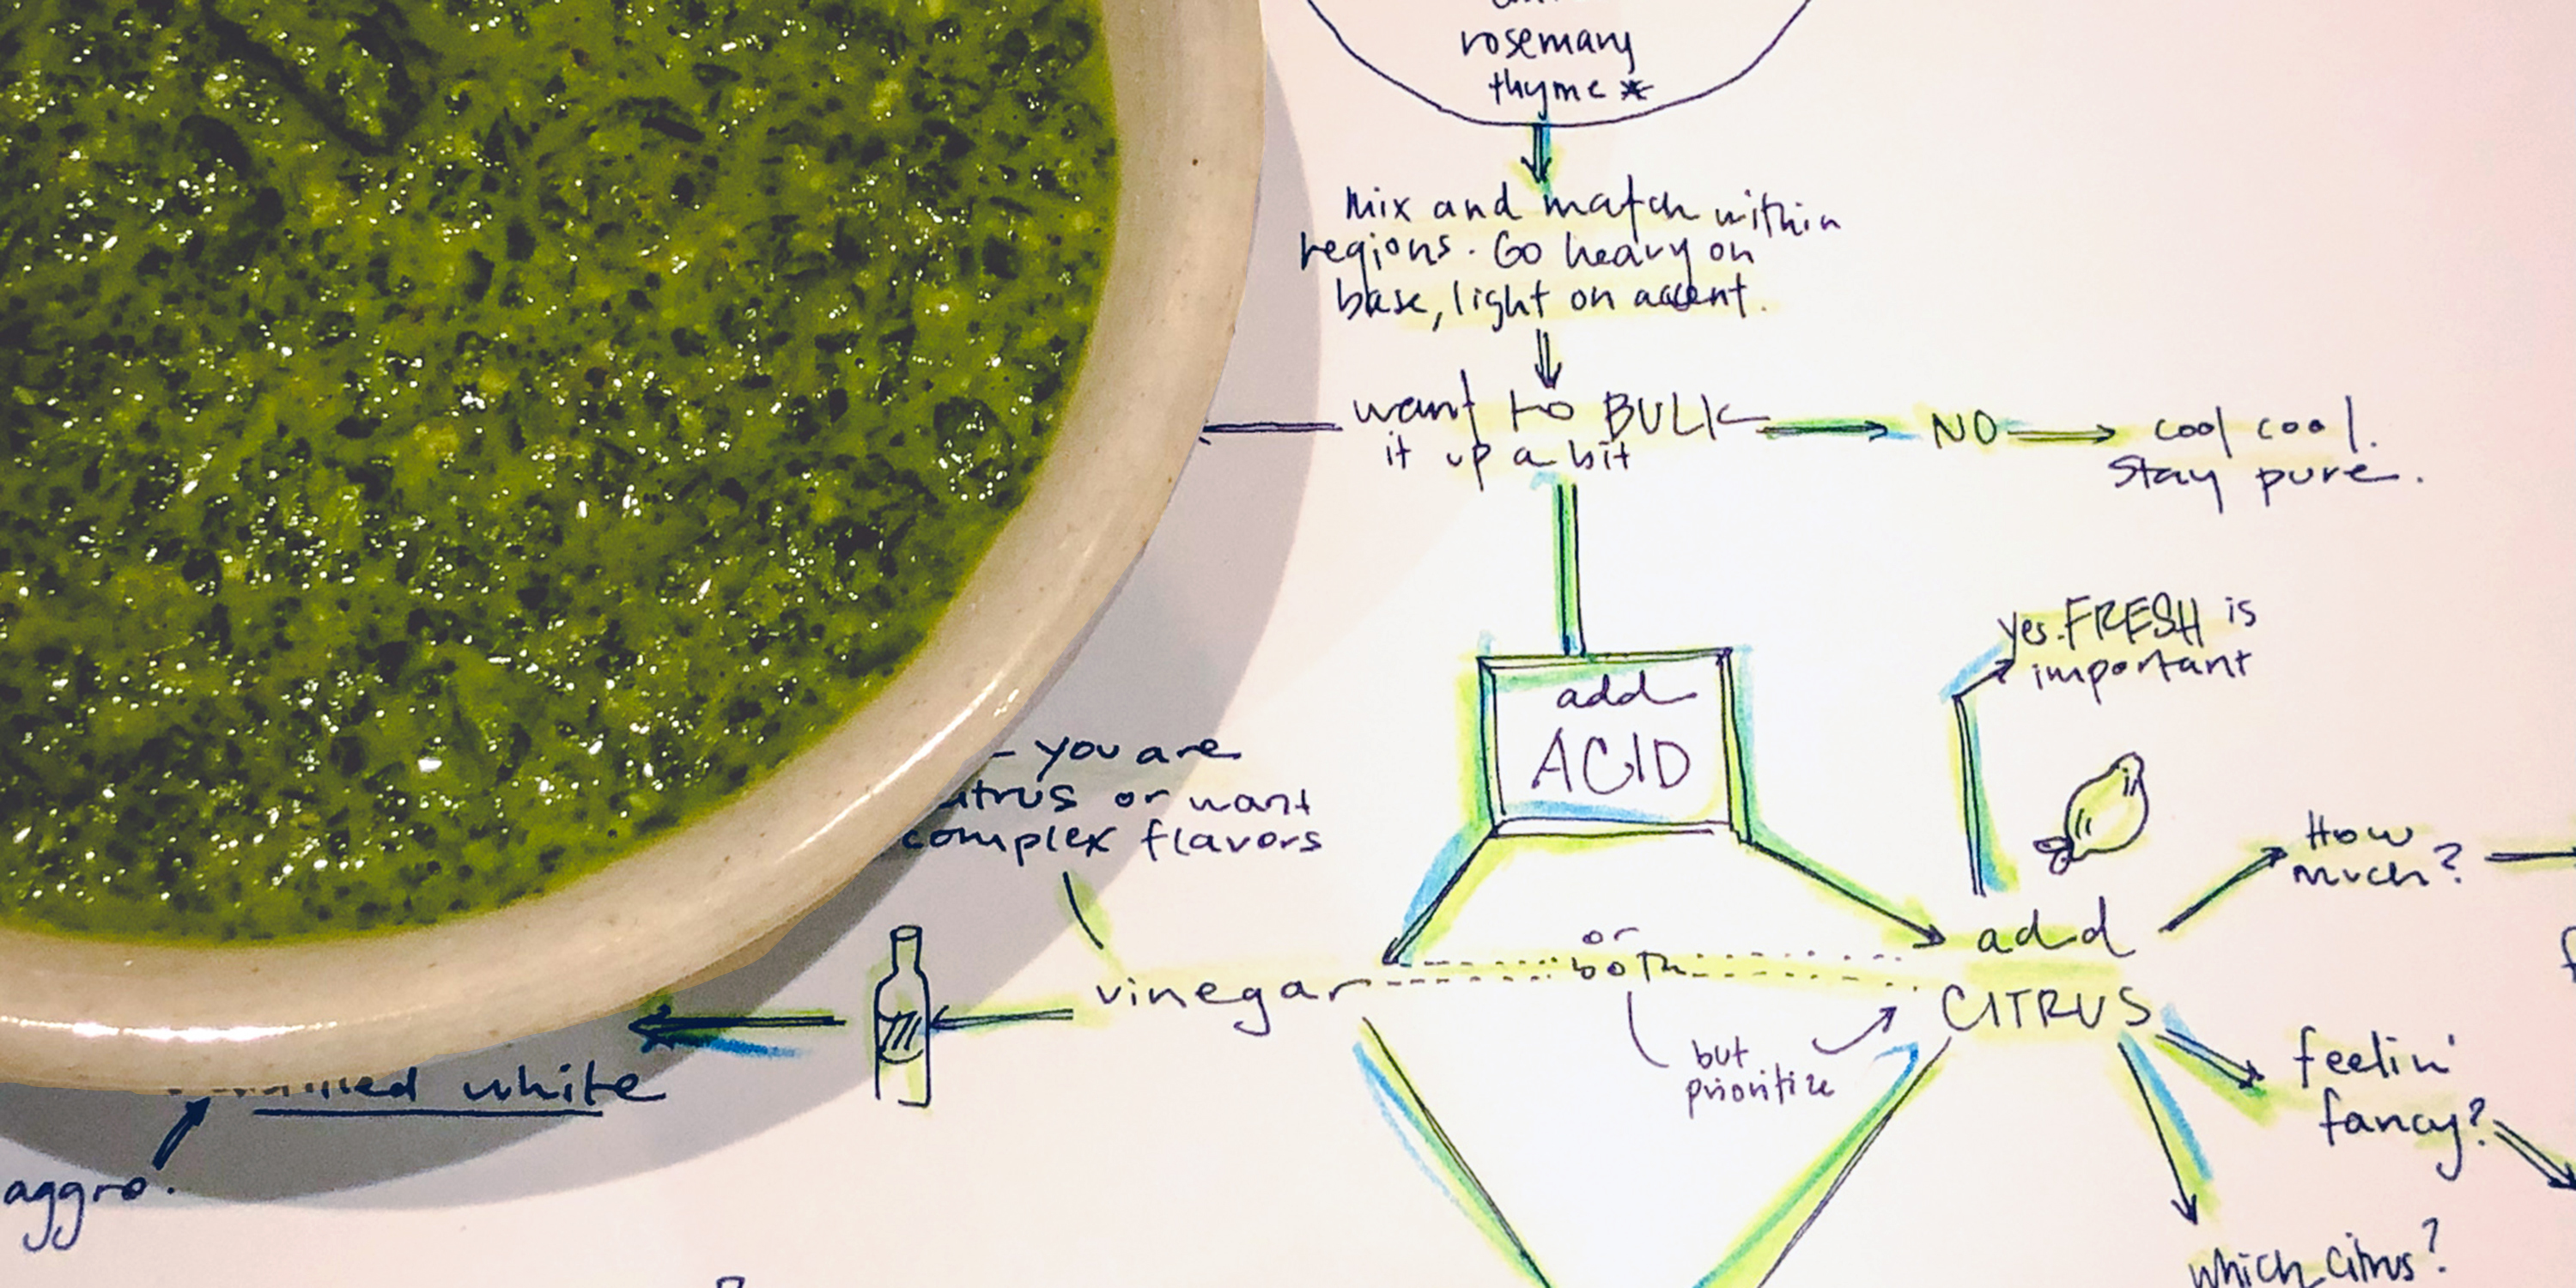 rosemary
thyme *
Mix and match within
regions. Go heavy on
base, light on accent.
want to BULK
it up a bit
NO
cool cool.
Stay pure.
yes. FRESH is
important
add
ACID
- you are
or want
complex flavors
How
much?
or
both
add
vinegar
CITRUS
but
prioritize
feelin'
fancy?
white
aggro.
which citrus?